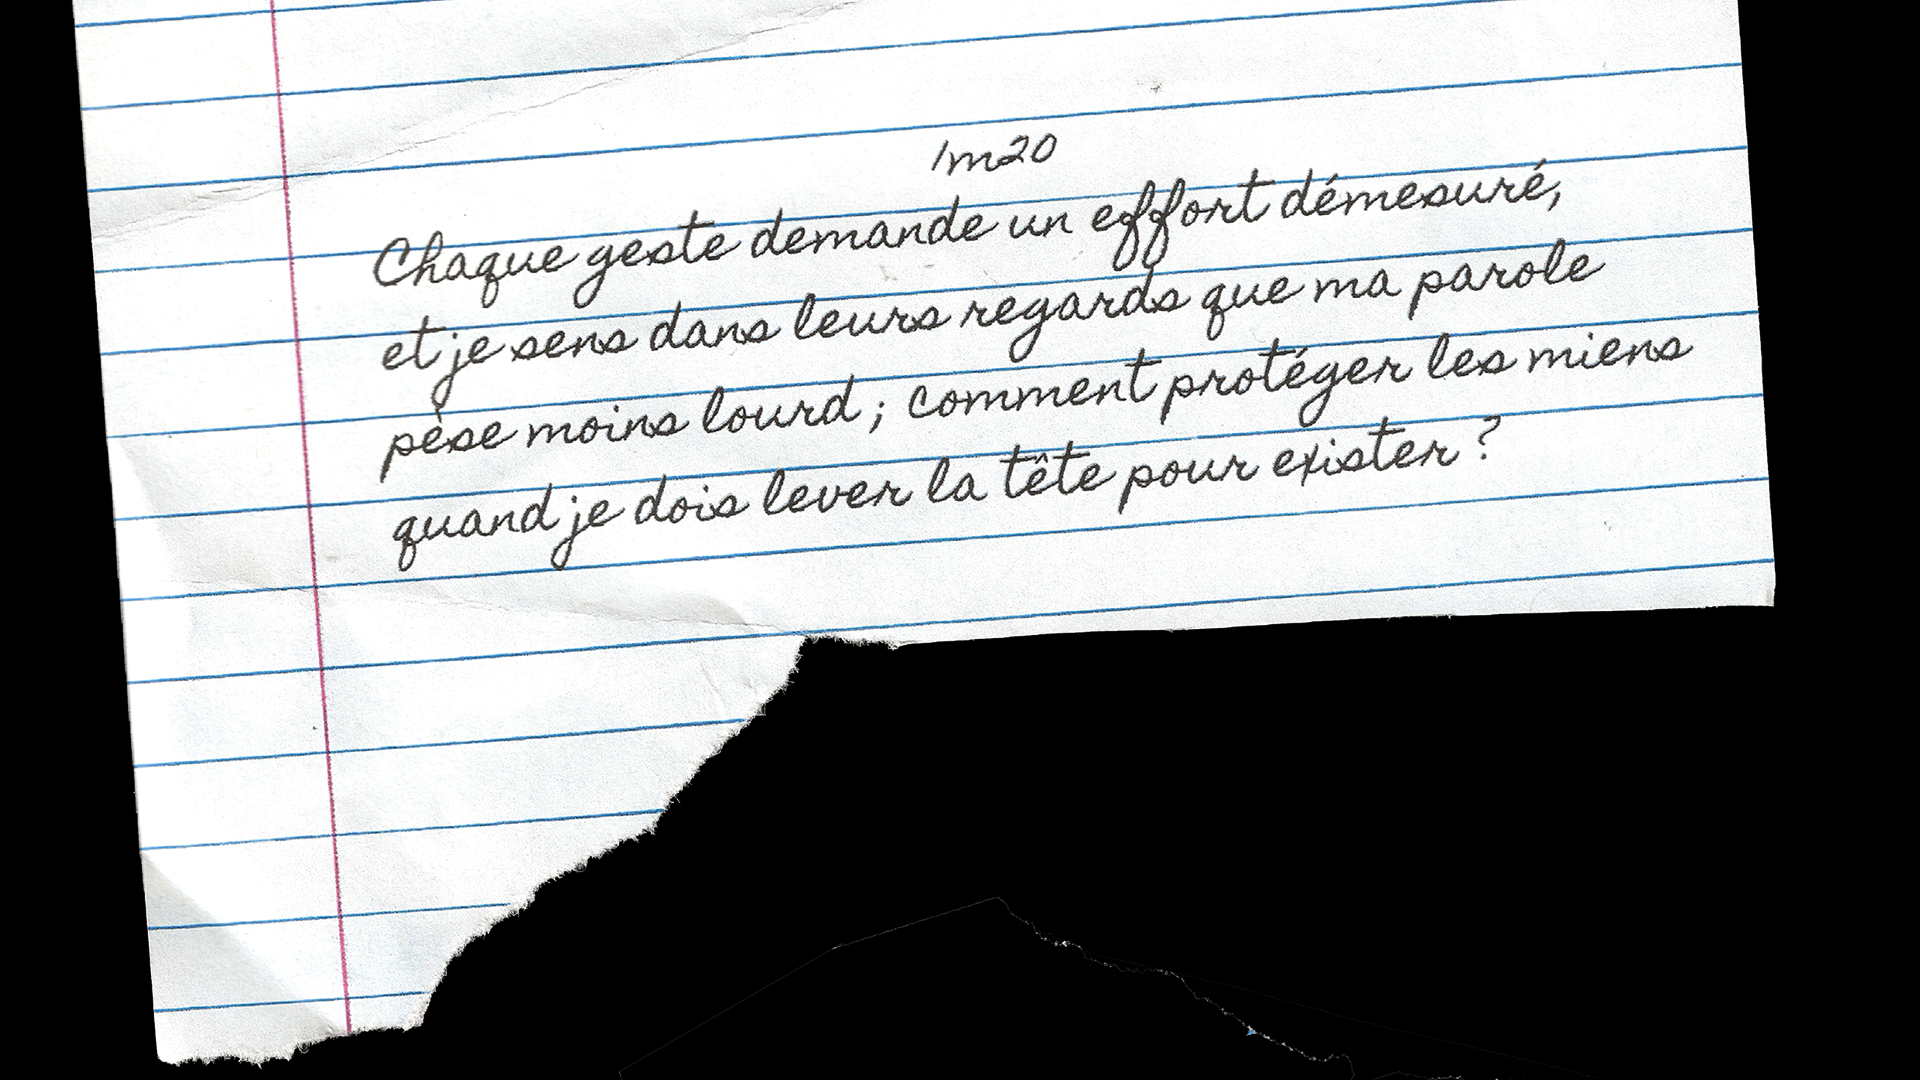 1m20
Chaque geste demande un effort démesuré,
et je sens dans leurs regards que ma parole
pèse moins lourd ; comment protéger les miens
quand je dois lever la tête pour exister ?